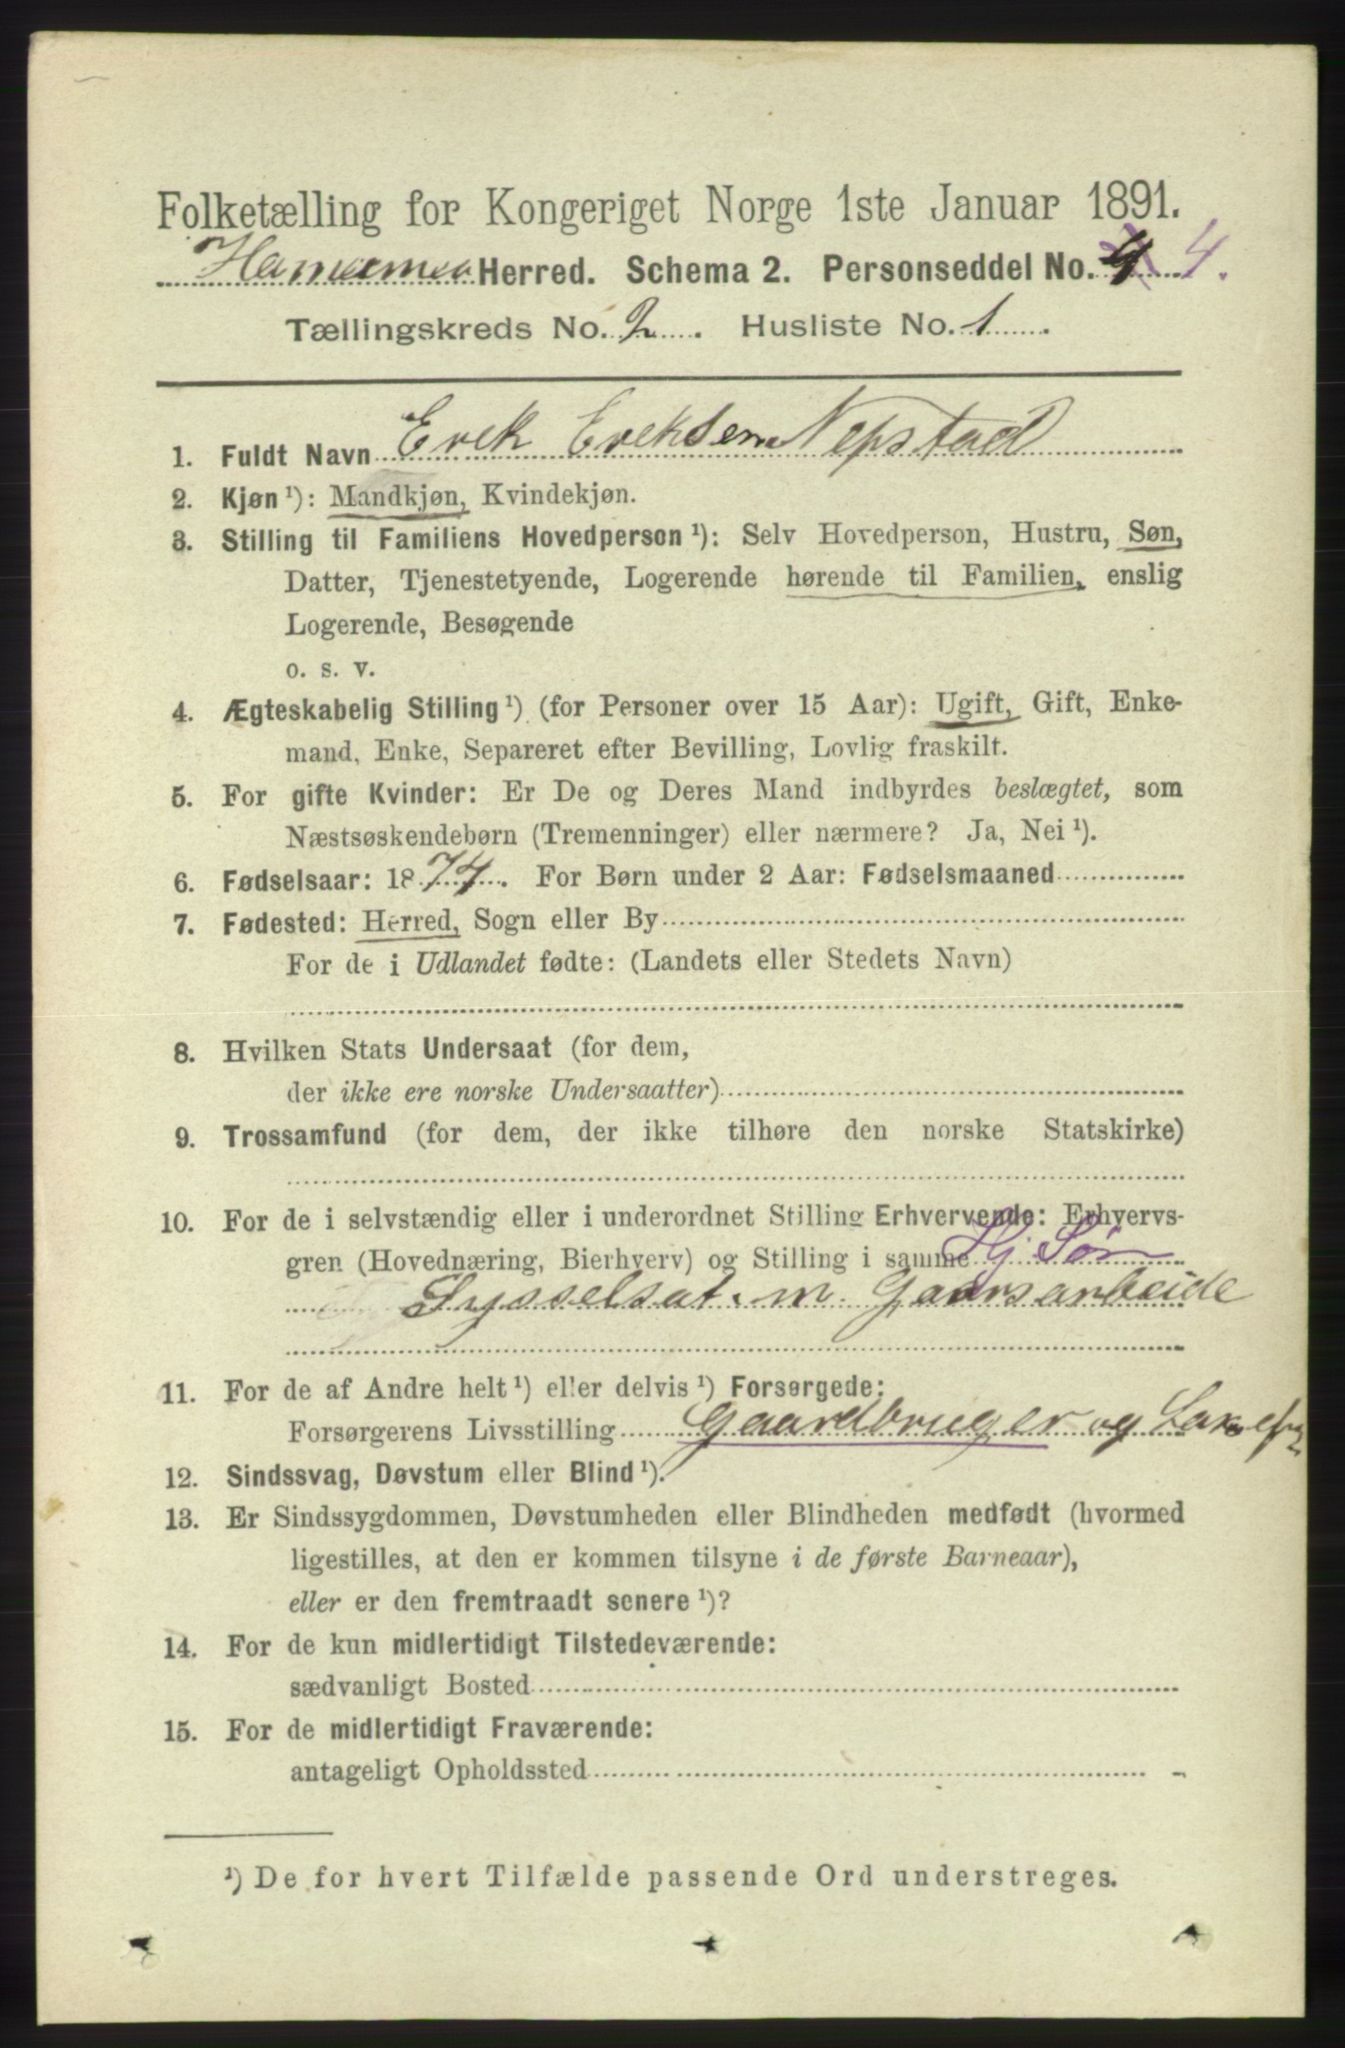 Folketælling for Kongeriget Norge 1ste Januar 1891.
Herred. Schema 2. Personseddel No. 4 4.
Tællingskreds No. 2. Husliste No. 1
1. Fuldt Navn Erek Ereksen Nepstad
2. Kjøn ¹): Mandkjøn, Kvindekjøn.
3. Stilling til Familiens Hovedperson ¹): Selv Hovedperson, Hustru, Søn,
Datter, Tjenestetyende, Logerende hørende til Familien, enslig
Logerende, Besøgende
o. s. v.
4. Ægteskabelig Stilling ¹) (for Personer over 15 Aar): Ugift, Gift, Enke-
mand, Enke, Separeret efter Bevilling, Lovlig fraskilt.
5. For gifte Kvinder: Er De og Deres Mand indbyrdes beslægtet, som
Næstsøskendebørn (Tremenninger) eller nærmere? Ja, Nei ¹).
6. Fødselsaar: 1874. For Børn under 2 Aar: Fødselsmaaned
7. Fødested: Herred, Sogn eller By
For de i Udlandet fødte: (Landets eller Stedets Navn)
8. Hvilken Stats Undersaat (for dem,
der ikke ere norske Undersaatter)
9. Trossamfund (for dem, der ikke tilhøre den norske Statskirke)
10. For de i selvstændig eller i underordnet Stilling Erhvervende: Erhvervs-
gren (Hovednæring, Bierhverv) og Stilling i samme Hj. Søn
Sysselsat. m. Gaarsarbeide
11. For de af Andre helt ¹) eller delvis ¹) Forsørgede:
Forsørgerens Livsstilling Gaardbruger og
12. Sindssvag, Døvstum eller Blind ¹).
13. Er Sindssygdommen, Døvstumheden eller Blindheden medfødt (hvormed
ligestilles, at den er kommen tilsyne i de første Barneaar),
eller er den fremtraadt senere ¹)?
14. For de kun midlertidigt Tilstedeværende:
sædvanligt Bosted
15. For de midlertidigt Fraværende:
antageligt Opholdssted
¹) De for hvert Tilfælde passende Ord understreges.